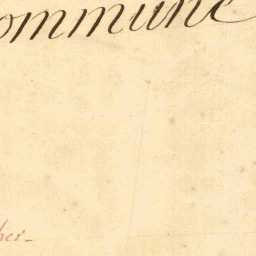 ommune
her_